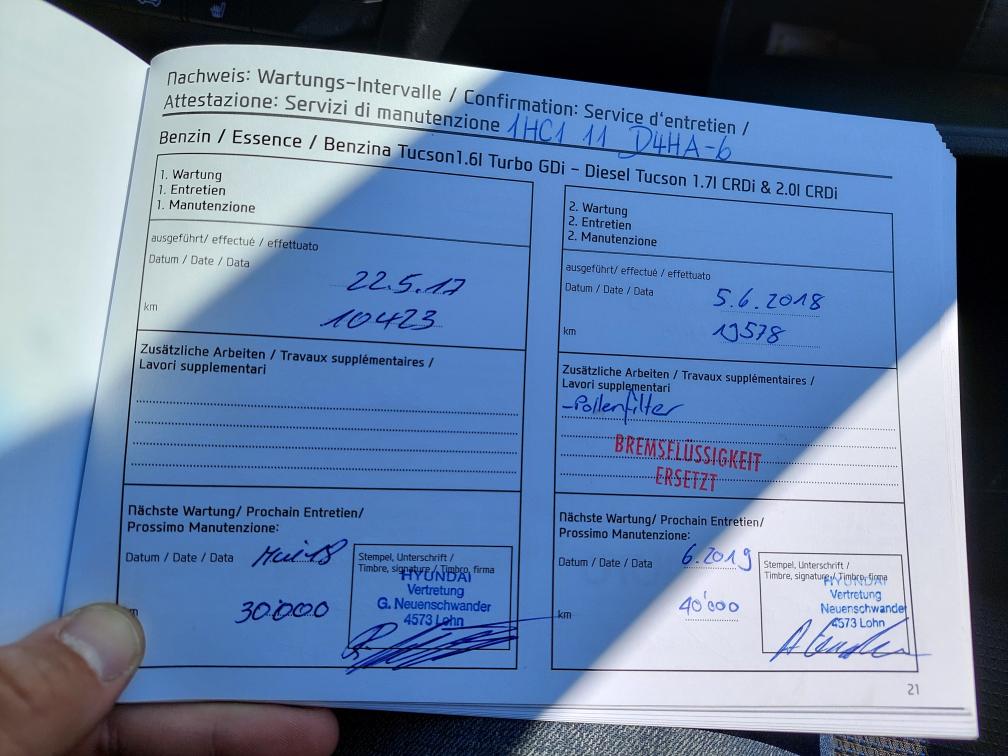 Nachweis: Wartungs-Intervalle / Confirmation: Service d'entretien /
Attestazione: Servizi di manutenzione 1HC1 11 D4HA-6
Benzin / Essence / Benzina Tucson1.6l Turbo GDi – Diesel Tucson 1.7l CRDi & 2.0l CRDi
1. Wartung
1. Entretien
1. Manutenzione
ausgeführt/ effectué / effettuato
Datum / Date / Data 22.5.17
km 10423
Zusätzliche Arbeiten / Travaux supplémentaires /
Lavori supplementari
Nächste Wartung/ Prochain Entretien/
Prossimo Manutenzione:
Datum / Date / Data Mai 18
30'000
Stempel, Unterschrift /
Timbre, signature / Timbro, firma
HYUNDAI
Vertretung
G. Neuenschwander
4573 Lohn
2. Wartung
2. Entretien
2. Manutenzione
ausgeführt/ effectué / effettuato
Datum / Date / Data 5.6.2018
km 19578
Zusätzliche Arbeiten / Travaux supplémentaires /
Lavori supplementari
-Pollenfilter
BREMSFLÜSSIGKEIT
ERSETZT
Nächste Wartung/ Prochain Entretien/
Prossimo Manutenzione:
Datum / Date / Data 6.2019
km 40'000
Stempel, Unterschrift /
Timbre, signature / Timbro, firma
HYUNDAI
Vertretung
Neuenschwander
4573 Lohn
21